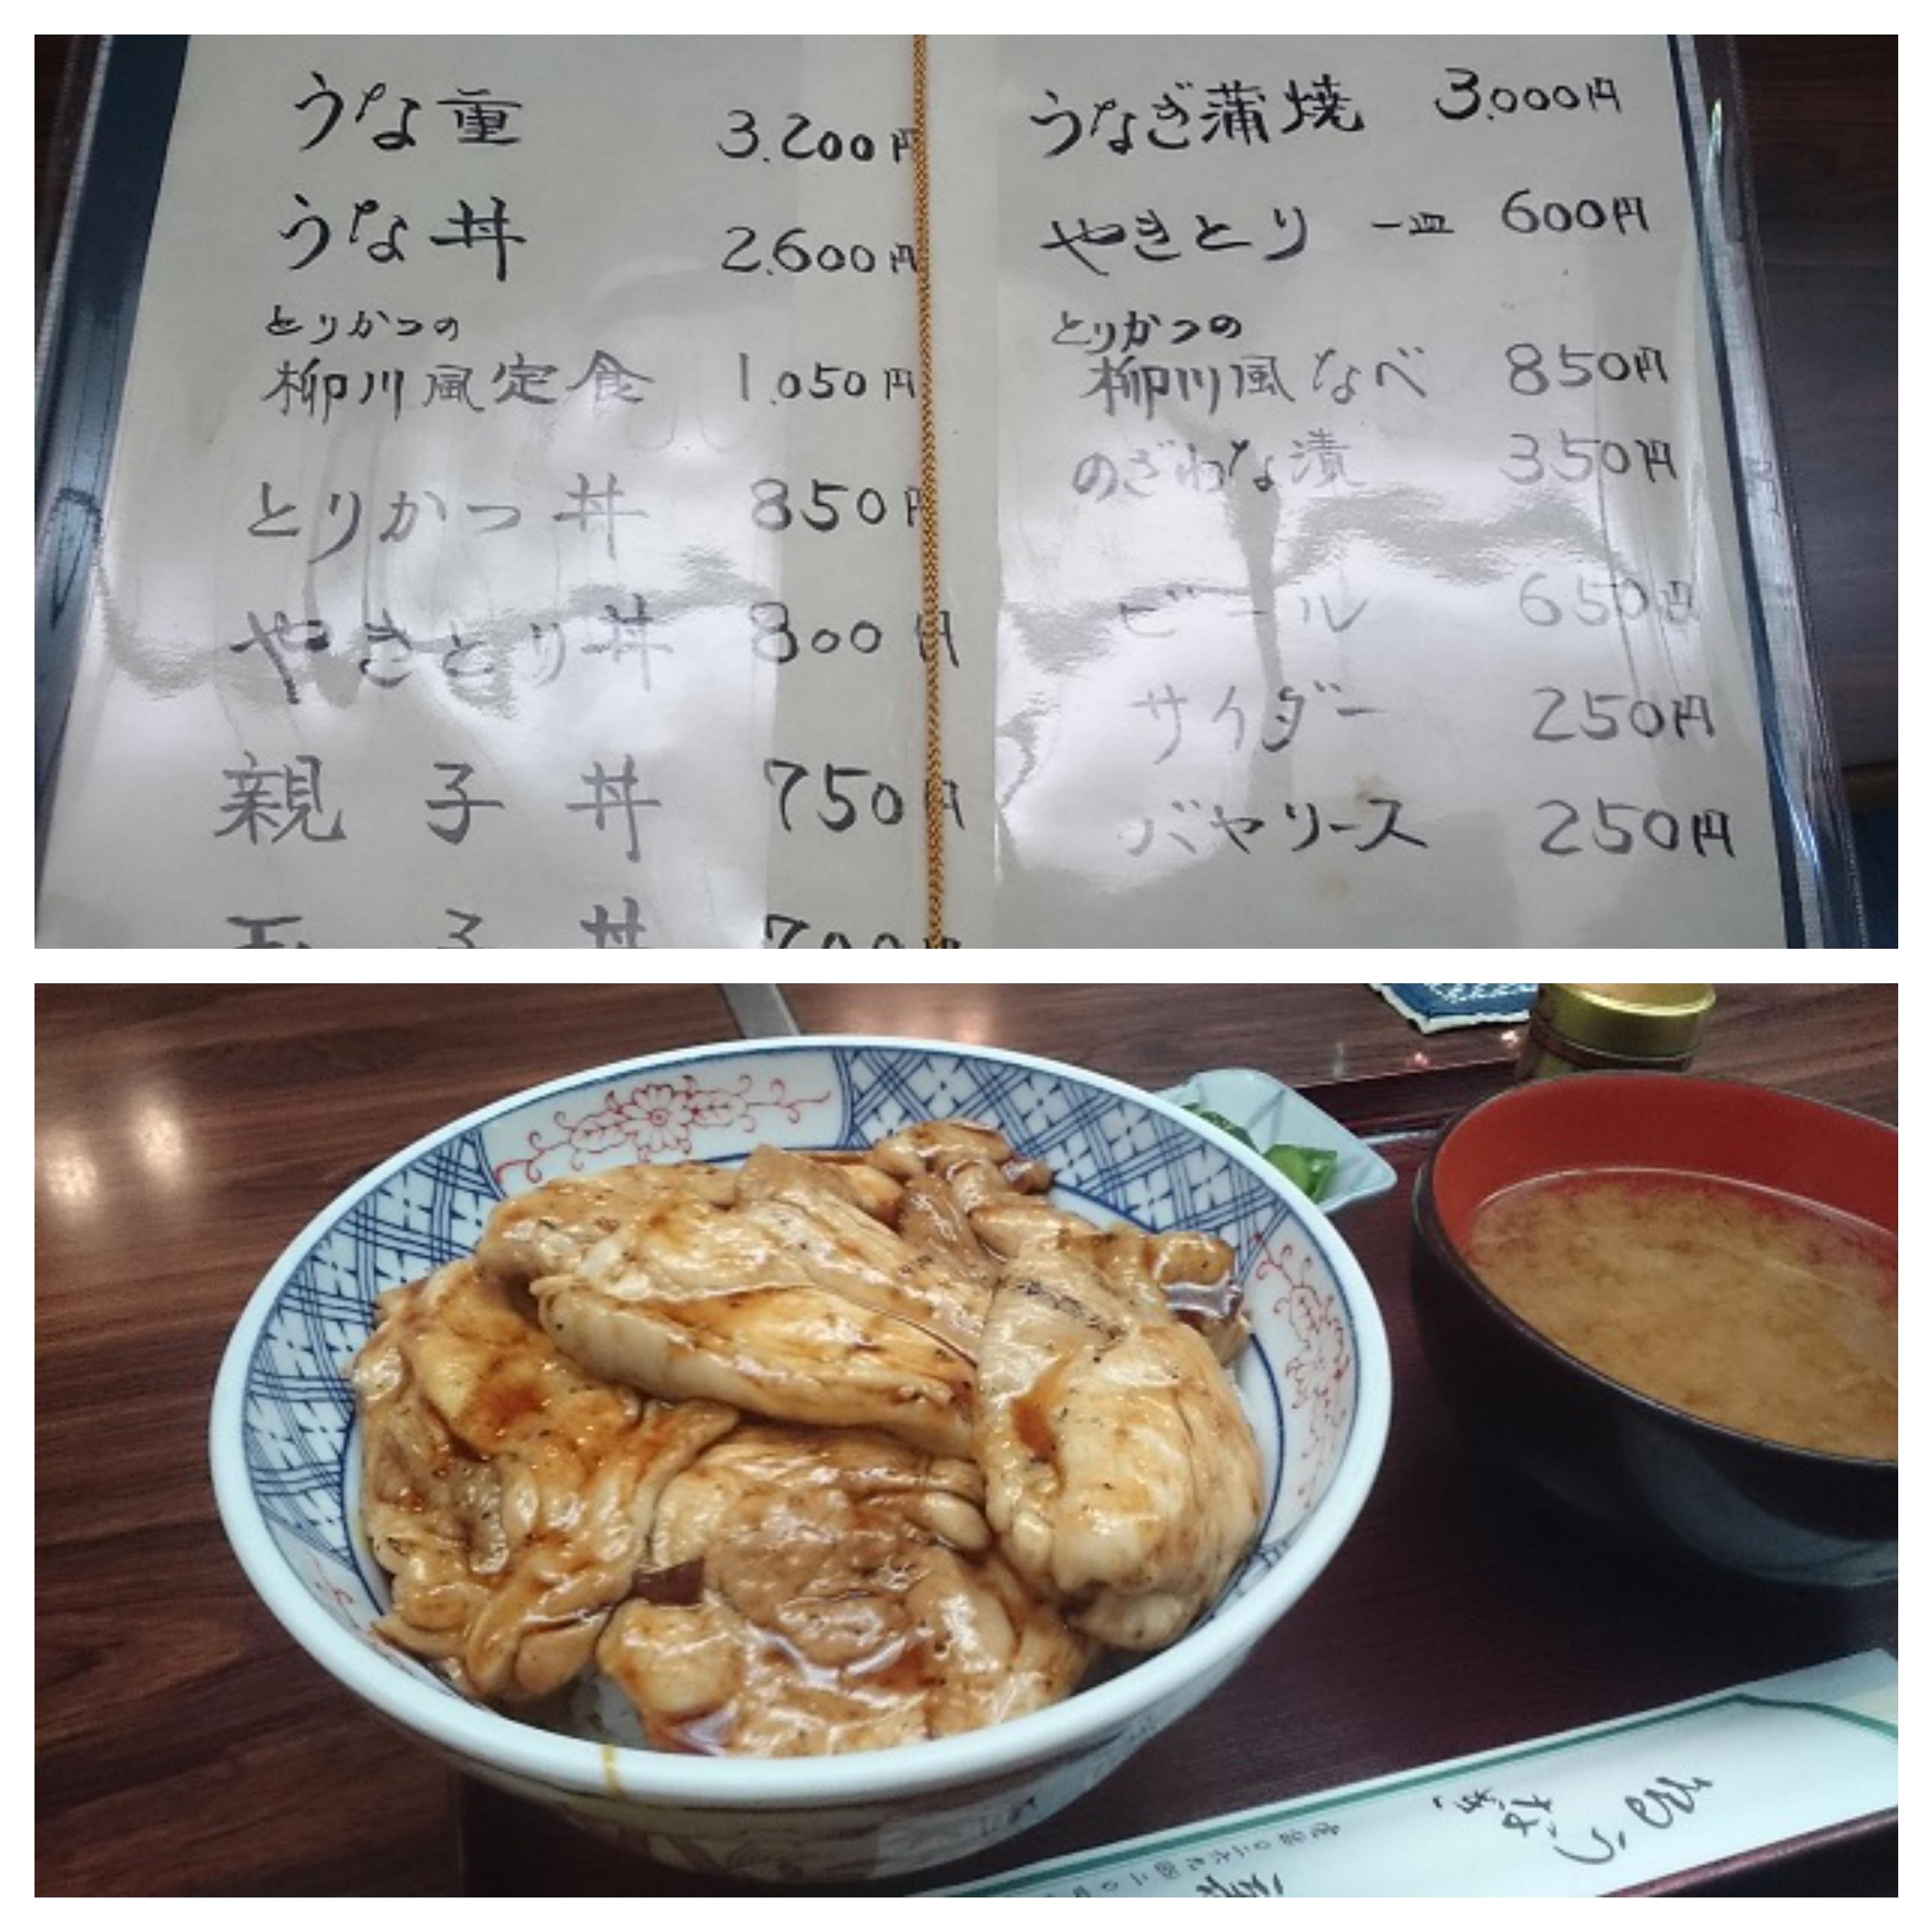 うな重 3.200円
うな丼 2.600円
とりかつの
柳川風定食 1.050円
とりかつ丼 850円
やきとり丼 800円
親子丼 750円
玉子丼 700円
うなぎ蒲焼 3.000円
やきとり 一皿 600円
とりかつの
柳川風なべ 850円
のざわな漬 350円
ビール 650円
サイダー 250円
バヤリース 250円
うなぎ